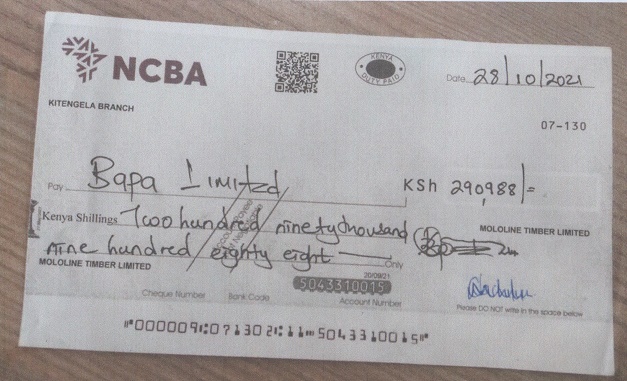 NCBA
KENYA
DUTY PAID
Date 28/10/2021
KITENGELA BRANCH
07-130
Pay Bapa Limited KSh 290,988/=
Kenya Shillings Two hundred ninety thousand
MOLOLINE TIMBER LIMITED
nine hundred eighty eight Only
MOLOLINE TIMBER LIMITED
20/09/21
5043310015
Cheque Number Bank Code Account Number
Please DO NOT write in the space below
⑈000009⑆071302⑆11⑉5043310015⑈